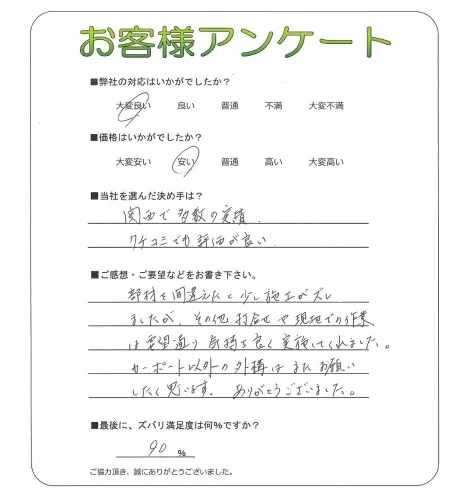 お客様アンケート
■弊社の対応はいかがでしたか？
大変良い 良い 普通 不満 大変不満
■価格はいかがでしたか？
大変安い 安い 普通 高い 大変高い
■当社を選んだ決め手は？
関西で多数の実績.
クチコミでも評価が良い.
■ご感想・ご要望などをお書き下さい。
部材を間違えたと少し施工がズレ
ましたが、その他 打合せや現地での作業
は要望通り 気持ち良く実施してくれました。
カーポート以外の外構はまたお願い
したく思います。 ありがとうございました。
■最後に、ズバリ満足度は何%ですか？
90 %
ご協力頂き、誠にありがとうございました。